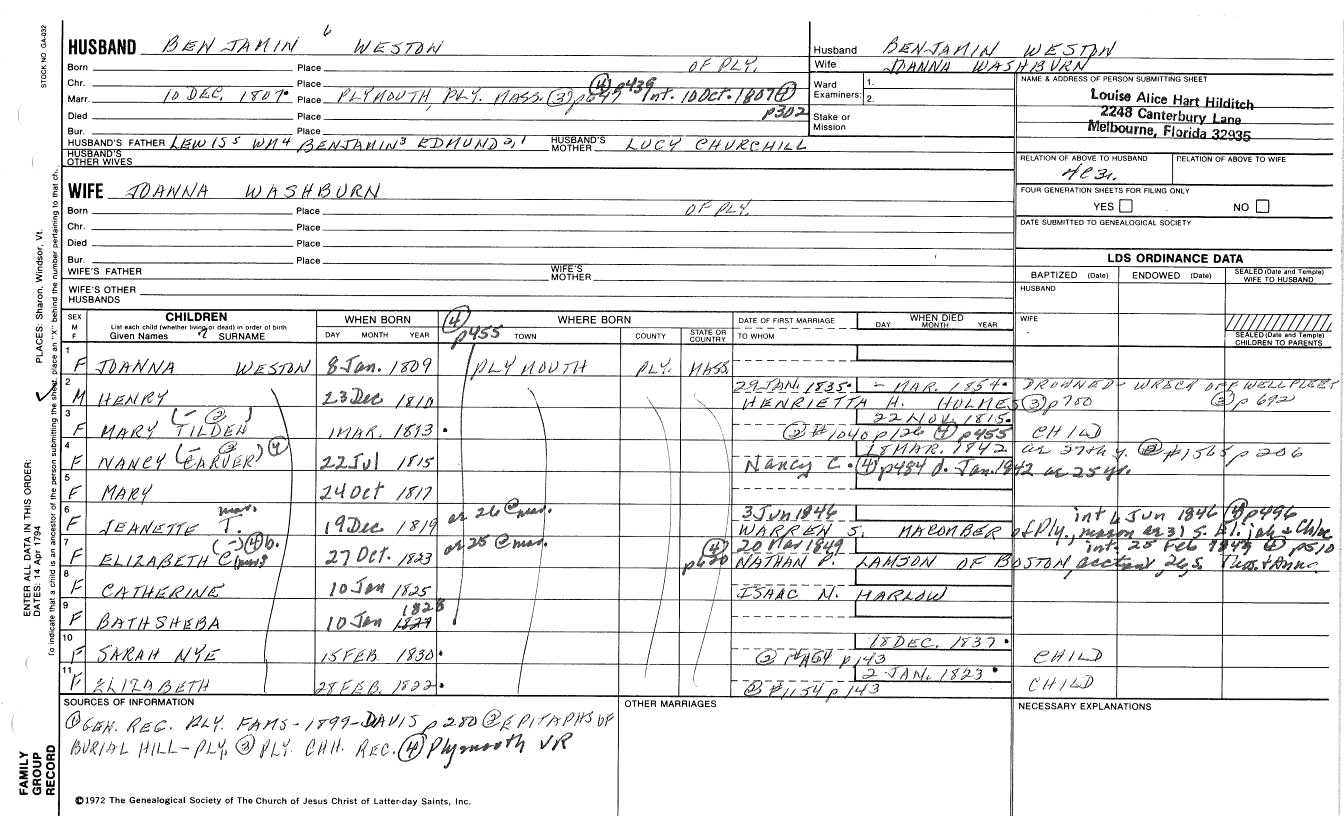 STOCK NO GA-032
HUSBAND BENJAMIN 6 WESTON
Born Place OF PLY.
Chr. Place
Marr. 10 DEC. 1807. Place PLYMOUTH, PLY. MASS. ③ p647 ④ p439 Int. 10 Oct. 1807 ④ p302
Died Place
Bur. Place
HUSBAND'S FATHER LEWIS 5 WM 4 BENJAMIN 3 EDMUND 2,1 HUSBAND'S MOTHER LUCY CHURCHILL
HUSBAND'S OTHER WIVES
WIFE JOANNA WASHBURN
Born Place OF PLY.
Chr. Place
Died Place
Bur. Place
WIFE'S FATHER WIFE'S MOTHER
WIFE'S OTHER HUSBANDS
Husband BENJAMIN WESTON
Wife JOANNA WASHBURN
Ward Examiners: 1. 2.
Stake or Mission
NAME & ADDRESS OF PERSON SUBMITTING SHEET
Louise Alice Hart Hilditch
2248 Canterbury Lane
Melbourne, Florida 32935
RELATION OF ABOVE TO HUSBAND RELATION OF ABOVE TO WIFE
FOUR GENERATION SHEETS FOR FILING ONLY
YES NO
DATE SUBMITTED TO GENEALOGICAL SOCIETY
LDS ORDINANCE DATA
BAPTIZED (Date) ENDOWED (Date) SEALED (Date and Temple) WIFE TO HUSBAND
HUSBAND
WIFE
SEALED (Date and Temple) CHILDREN TO PARENTS
SEX M F CHILDREN WHEN BORN ④ p455 WHERE BORN DATE OF FIRST MARRIAGE WHEN DIED
List each child (whether living or dead) in order of birth
Given Names 7 SURNAME DAY MONTH YEAR TOWN COUNTY STATE OR COUNTRY TO WHOM DAY MONTH YEAR
1 F JOANNA WESTON 8 Jan. 1809 PLYMOUTH PLY. MASS
2 M HENRY 23 Dec 1810 29 JAN. 1835. - MAR. 1854. DROWNED - WRECK OFF WELLFLEET
HENRIETTA H. HOLMES ③ p700 ③ p 692
3 F MARY TILDEN (- ②) 1 MAR. 1813. 22 NOV. 1815.
② #1040 p126 ④ p455 CHILD
4 F NANCY (- CARVER ②) ④ 22 Jul 1815 18 MAR. 1842 ae 27th y. ② #1565 p 206
Nancy C. ④ p484 d. Jan. 1842 ae 25 yr.
5 F MARY 24 Oct 1817
6 F JEANETTE T. mar. 19 Dec 1819 ae 26 @ mar. 3 Jun 1846 int 6 Jun 1846 ④ p496
WARREN S. MACOMBER of Ply., mason ae 31 s. Elijah & Chloe
7 F ELIZABETH C (-) ④ b. 27 Oct. 1823 ae 25 @ mar. ④ p620 20 Mar 1849 int. 25 Feb 1849 ④ p510
NATHAN P. LAMSON OF BOSTON,
8 F CATHERINE 10 Jan 1825 ISAAC N. HARLOW
9 F BATHSHEBA 10 Jan 1827 1828
10 F SARAH NYE 15 FEB. 1830. 18 DEC. 1837.
p143 CHILD
11 F ELIZABETH 28 FEB. 1822. 2 JAN. 1823.
② #1154 p143 CHILD
SOURCES OF INFORMATION
① GEN. REG. PLY. FAMS - 1899 - DAVIS p 280 ② EPITAPHS OF
BURIAL HILL - PLY. ③ PLY. CHH. REC. ④ Plymouth VR
OTHER MARRIAGES
NECESSARY EXPLANATIONS
©1972 The Genealogical Society of The Church of Jesus Christ of Latter-day Saints, Inc.
ENTER ALL DATA IN THIS ORDER:
DATES: 14 Apr 1794 PLACES: Sharon, Windsor, Vt.
To indicate that a child is an ancestor of the person submitting the sheet, place an "X" behind the number pertaining to that ch.
FAMILY GROUP RECORD